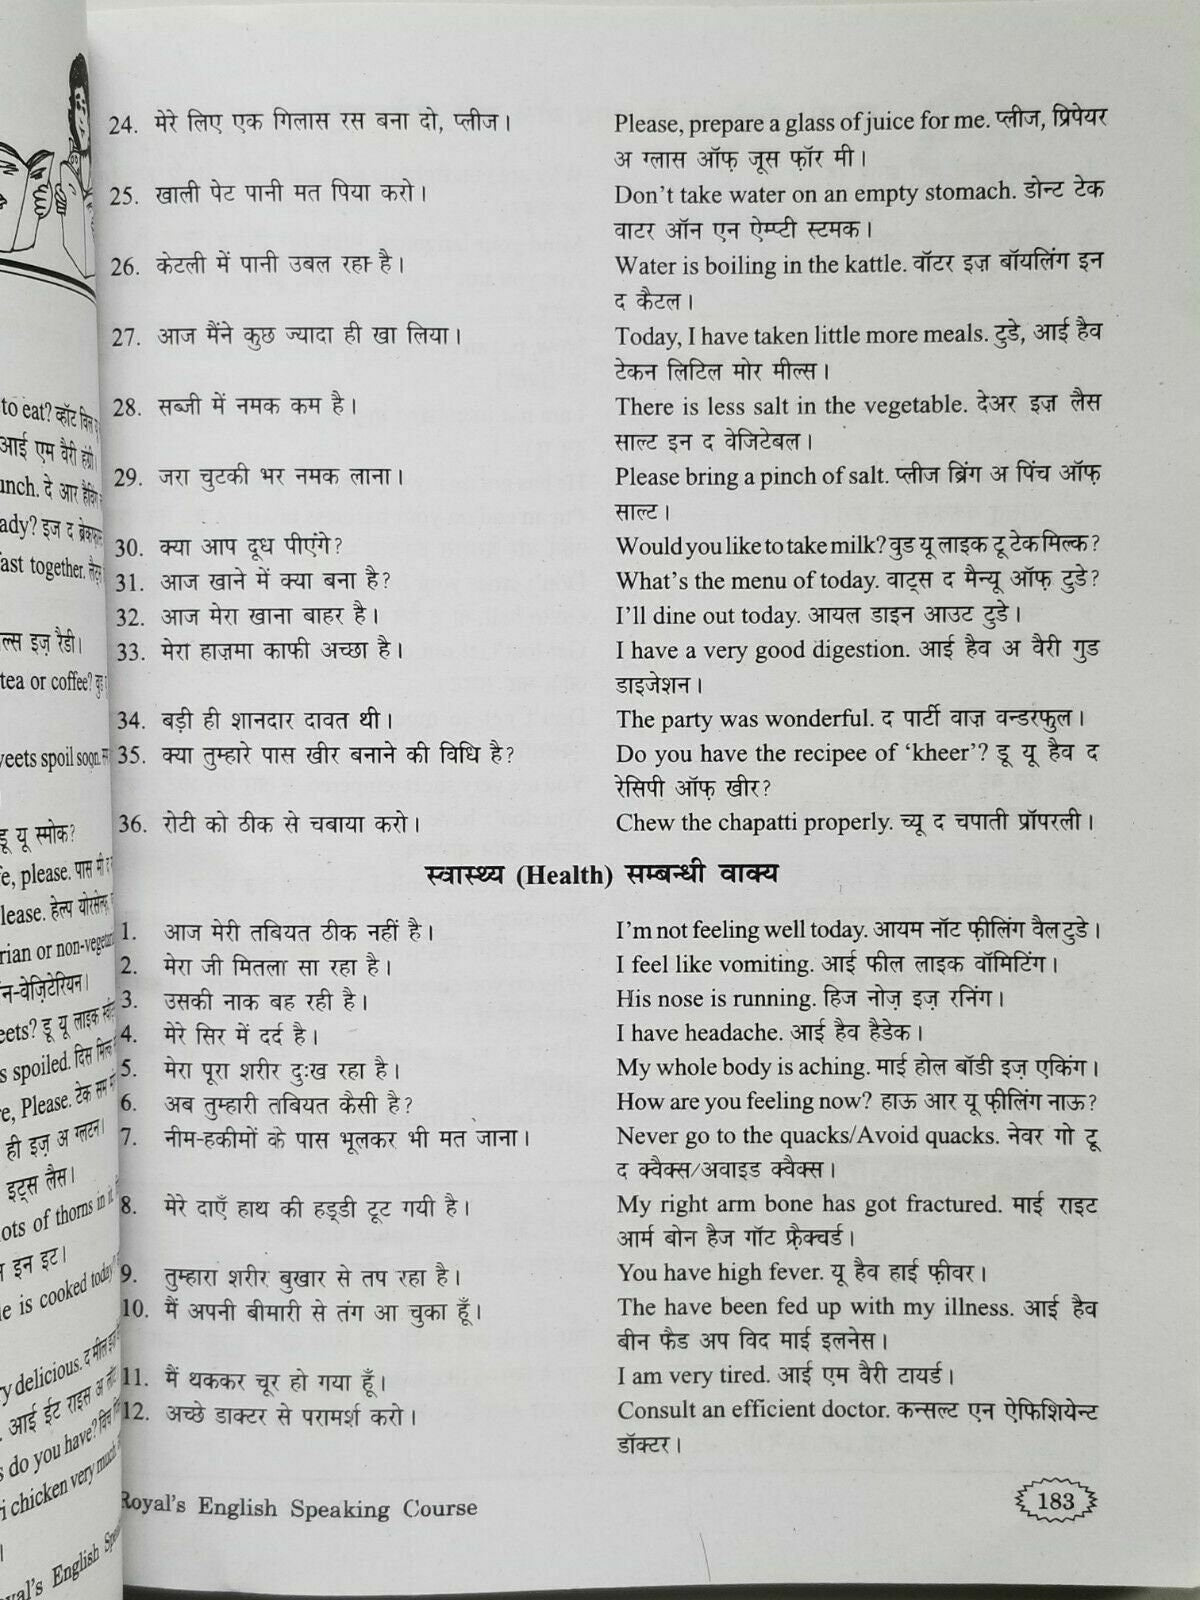 24. मेरे लिए एक गिलास रस बना दो, प्लीज। Please, prepare a glass of juice for me. प्लीज, प्रिपेयर
अ ग्लास ऑफ़ जूस फ़ॉर मी।
25. खाली पेट पानी मत पिया करो। Don't take water on an empty stomach. डोन्ट टेक
वाटर ऑन एन ऐम्प्टी स्टमक।
26. केटली में पानी उबल रहा है। Water is boiling in the kattle. वॉटर इज़ बॉयलिंग इन
द कैटल।
27. आज मैंने कुछ ज्यादा ही खा लिया। Today, I have taken little more meals. टुडे, आई हैव
टेकन लिटिल मोर मील्स।
28. सब्जी में नमक कम है। There is less salt in the vegetable. देअर इज़ लैस
साल्ट इन द वेजिटेबल।
29. जरा चुटकी भर नमक लाना। Please bring a pinch of salt. प्लीज ब्रिंग अ पिंच ऑफ़
साल्ट।
30. क्या आप दूध पीएंगे? Would you like to take milk? वुड यू लाइक टू टेक मिल्क?
31. आज खाने में क्या बना है? What's the menu of today. वाट्स द मैन्यू ऑफ़ टुडे?
32. आज मेरा खाना बाहर है। I'll dine out today. आयल डाइन आउट टुडे।
33. मेरा हाज़मा काफी अच्छा है। I have a very good digestion. आई हैव अ वैरी गुड
डाइजेशन।
34. बड़ी ही शानदार दावत थी। The party was wonderful. द पार्टी वाज़ वन्डरफुल।
35. क्या तुम्हारे पास खीर बनाने की विधि है? Do you have the recipee of 'kheer'? डू यू हैव द
रेसिपी ऑफ़ खीर?
36. रोटी को ठीक से चबाया करो। Chew the chapatti properly. च्यू द चपाती प्रॉपरली।
स्वास्थ्य (Health) सम्बन्धी वाक्य
1. आज मेरी तबियत ठीक नहीं है। I'm not feeling well today. आयम नॉट फ़ीलिंग वैल टुडे।
2. मेरा जी मितला सा रहा है। I feel like vomiting. आई फील लाइक वॉमिटिंग।
3. उसकी नाक बह रही है। His nose is running. हिज नोज़ इज़ रनिंग।
4. मेरे सिर में दर्द है। I have headache. आई हैव हैडेक।
5. मेरा पूरा शरीर दुःख रहा है। My whole body is aching. माई होल बॉडी इज़ एकिंग।
6. अब तुम्हारी तबियत कैसी है? How are you feeling now? हाऊ आर यू फ़ीलिंग नाऊ?
7. नीम-हकीमों के पास भूलकर भी मत जाना। Never go to the quacks/Avoid quacks. नेवर गो टू
द क्वैक्स/अवाइड क्वैक्स।
8. मेरे दाएँ हाथ की हड्डी टूट गयी है। My right arm bone has got fractured. माई राइट
आर्म बोन हैज गॉट फ़्रैक्चर्ड।
9. तुम्हारा शरीर बुखार से तप रहा है। You have high fever. यू हैव हाई फ़ीवर।
10. मैं अपनी बीमारी से तंग आ चुका हूँ। The have been fed up with my illness. आई हैव
बीन फैड अप विद माई इलनेस।
11. मैं थककर चूर हो गया हूँ। I am very tired. आई एम वैरी टायर्ड।
12. अच्छे डाक्टर से परामर्श करो। Consult an efficient doctor. कन्सल्ट एन ऐफिशियेन्ट
डॉक्टर।
Royal's English Speaking Course 183
to eat? व्हॉट विल
आई एम वैरी हंग्री।
unch. दे आर हैविंग
ady? इज द ब्रेकफास्ट
ast together.
ल्स इज़ रैडी।
tea or coffee?
veets spoil soon.
डू यू स्मोक?
e, please. पास मी द
lease. हेल्प योरसेल्फ,
rian or non-vegetarian
न-वेज़िटेरियन।
eets? डू यू लाइक
s spoiled. दिस मिल्क
e, Please. टेक सम
ही इज़ अ ग्लटन।
इट्स लैस।
lots of thorns in it.
न इन इट।
le is cooked today?
ry delicious. द मील इज़
. आई ईट राइस अ लॉट
s do you have?
i chicken very much.
oyal's English